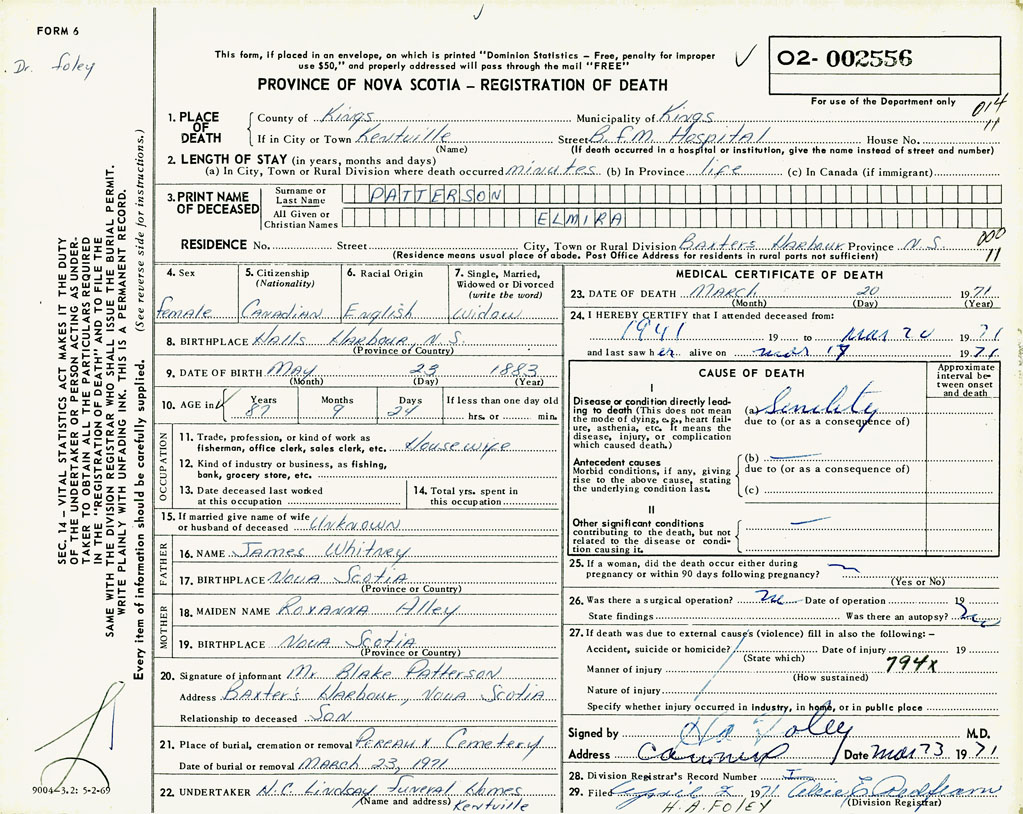 FORM 6
Dr. Foley
This form, if placed in an envelope, on which is printed "Dominion Statistics – Free, penalty for improper
use $50," and properly addressed will pass through the mail "FREE"
PROVINCE OF NOVA SCOTIA – REGISTRATION OF DEATH
02-002556
For use of the Department only
014
11
1. PLACE OF DEATH
County of Kings Municipality of Kings
If in City or Town Kentville Street B.F.M. Hospital House No.
(Name) (If death occurred in a hospital or institution, give the name instead of street and number)
2. LENGTH OF STAY (in years, months and days)
(a) In City, Town or Rural Division where death occurred minutes (b) In Province life (c) In Canada (if immigrant)
3. PRINT NAME OF DECEASED
Surname or Last Name PATTERSON
All Given or Christian Names ELMIRA
RESIDENCE No. Street City, Town or Rural Division Baxters Harbour Province N.S.
(Residence means usual place of abode. Post Office Address for residents in rural parts not sufficient)
000
11
4. Sex
female
5. Citizenship
(Nationality)
Canadian
6. Racial Origin
English
7. Single, Married,
Widowed or Divorced
(write the word)
Widow
8. BIRTHPLACE Halls Harbour, N.S.
(Province of Country)
9. DATE OF BIRTH May 23 1883
(Month) (Day) (Year)
10. AGE in Years Months Days If less than one day old
87 9 24 hrs. or min.
OCCUPATION
11. Trade, profession, or kind of work as
fisherman, office clerk, sales clerk, etc. Housewife
12. Kind of industry or business, as fishing,
bank, grocery store, etc.
13. Date deceased last worked
at this occupation
14. Total yrs. spent in
this occupation
15. If married give name of wife
or husband of deceased Unknown
FATHER
16. NAME James Whitney
17. BIRTHPLACE Nova Scotia
(Province or Country)
MOTHER
18. MAIDEN NAME Roxanna Alley
19. BIRTHPLACE Nova Scotia
(Province or Country)
20. Signature of informant Mr Blake Patterson
Address Baxter's Harbour, Nova Scotia
Relationship to deceased Son
21. Place of burial, cremation or removal Pereaux Cemetery
Date of burial or removal March 23, 1971
22. UNDERTAKER N.C. Lindsay Funeral Homes
(Name and address) Kentville
MEDICAL CERTIFICATE OF DEATH
23. DATE OF DEATH March 20 1971
(Month) (Day) (Year)
24. I HEREBY CERTIFY that I attended deceased from:
1941 19 to Mar 20 1971
and last saw her alive on Mar 1971
CAUSE OF DEATH
Approximate
interval be-
tween onset
and death
I
Disease or condition directly lead-
ing to death (This does not mean
the mode of dying, e.g., heart fail-
ure, asthenia, etc. It means the
disease, injury, or complication
which caused death.)
(a) Senility
due to (or as a consequence of)
Antecedent causes
Morbid conditions, if any, giving
rise to the above cause, stating
the underlying condition last.
(b) —
due to (or as a consequence of)
(c)
II
Other significant conditions
contributing to the death, but not
related to the disease or condi-
tion causing it.
—
25. If a woman, did the death occur either during
pregnancy or within 90 days following pregnancy?
(Yes or No)
26. Was there a surgical operation? no Date of operation 19
State findings Was there an autopsy? no
27. If death was due to external causes (violence) fill in also the following:–
Accident, suicide or homicide? Date of injury 19
(State which)
Manner of injury 794x
(How sustained)
Nature of injury
Specify whether injury occurred in industry, in home, or in public place
Signed by H A Foley M.D.
Address Canning Date Mar 23 1971
28. Division Registrar's Record Number
29. Filed April 1971
(Division Registrar)
H.A. FOLEY
SEC. 14 – VITAL STATISTICS ACT MAKES IT THE DUTY
OF THE UNDERTAKER OR PERSON ACTING AS UNDER-
TAKER TO OBTAIN ALL THE PARTICULARS REQUIRED
IN THE "REGISTRATION OF DEATH" AND TO FILE THE
SAME WITH THE DIVISION REGISTRAR WHO SHALL ISSUE THE BURIAL PERMIT.
WRITE PLAINLY WITH UNFADING INK. THIS IS A PERMANENT RECORD.
Every item of information should be carefully supplied. (See reverse side for instructions.)
9004-3.2: 5-2-69